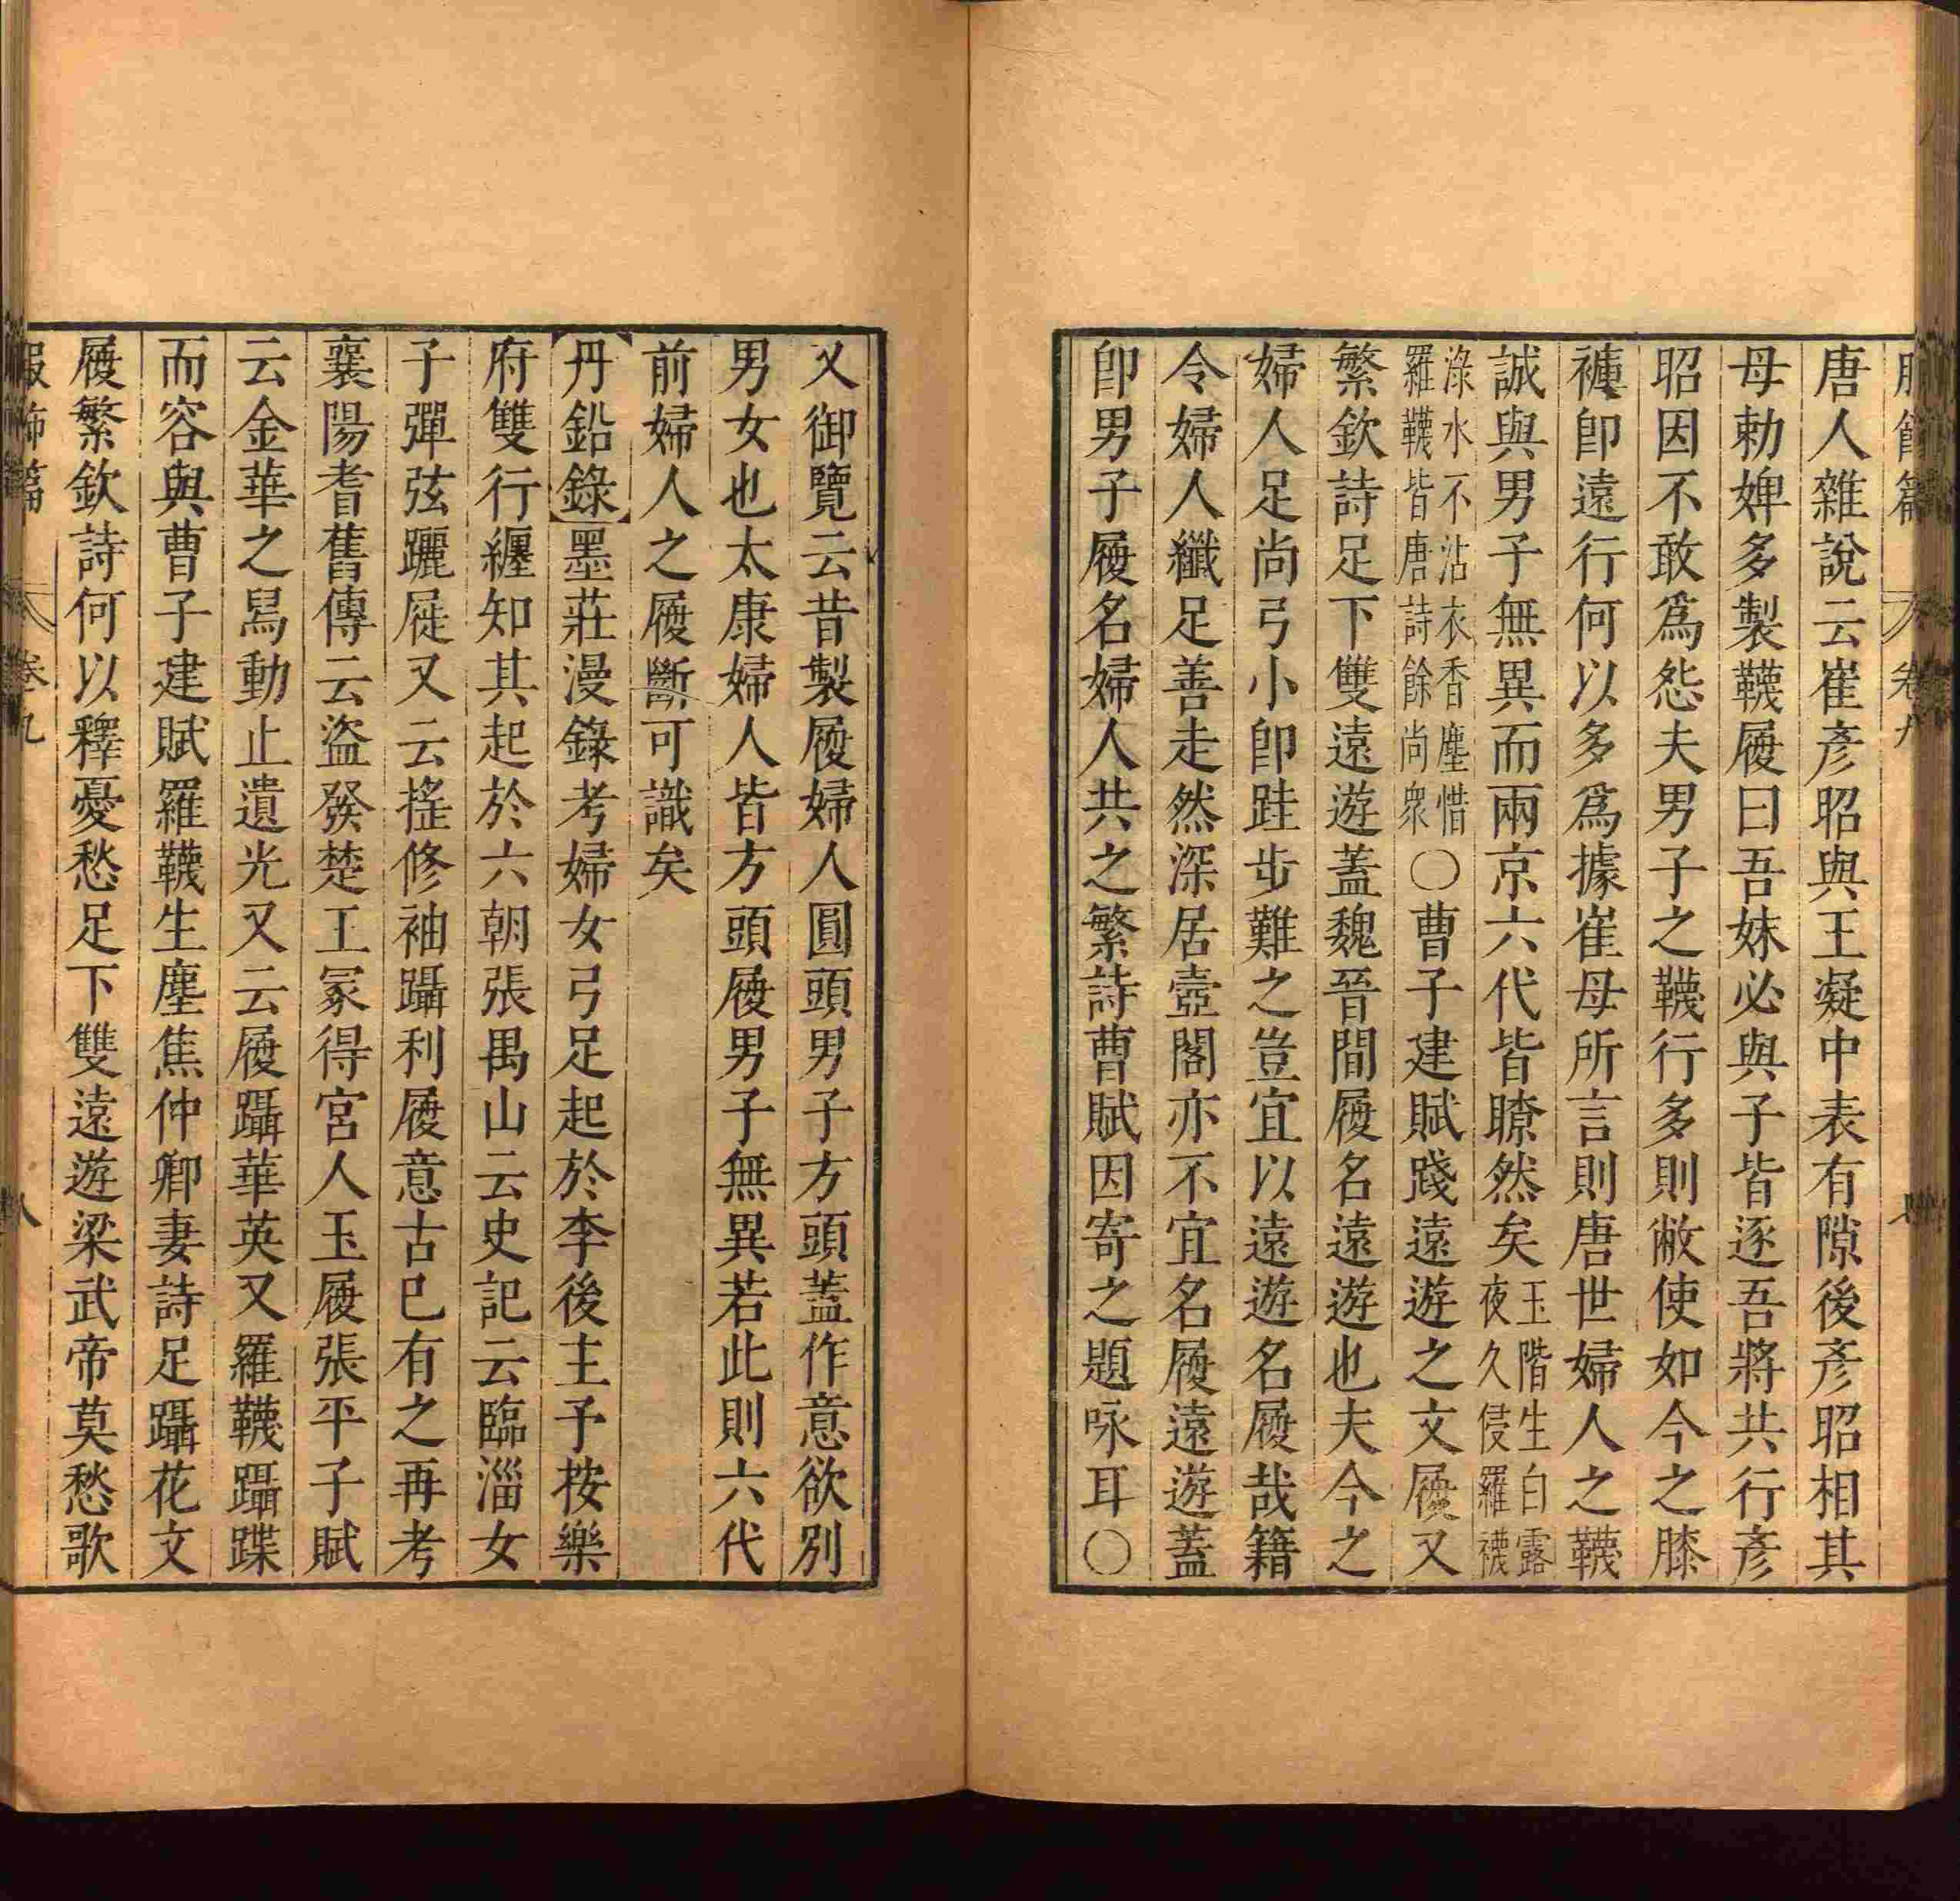 服飾篇 卷九
唐人雜說云崔彥昭與王凝中表有隙後彥昭相其
母勅婢多製韈履曰吾妹必與子皆逐吾將共行彥
昭因不敢爲怨夫男子之韈行多則敝使如今之膝
褲卽遠行何以多爲據崔母所言則唐世婦人之韈
誠與男子無異而兩京六代皆瞭然矣玉階生白露夜久侵羅襪
淥水不沾衣香塵惜羅韈皆唐詩餘尚衆〇曹子建賦踐遠遊之文履又
繁欽詩足下雙遠遊蓋魏晉間履名遠遊也夫今之
婦人足尚弓小卽跬步難之豈宜以遠遊名履哉籍
令婦人纖足善走然深居壺閣亦不宜名履遠遊蓋
卽男子履名婦人共之繁詩曹賦因寄之題咏耳〇
又御覽云昔製履婦人圓頭男子方頭蓋作意欲別
男女也太康婦人皆方頭履男子無異若此則六代
前婦人之履斷可識矣
丹鉛錄墨莊漫錄考婦女弓足起於李後主予按樂
府雙行纏知其起於六朝張禺山云史記云臨淄女
子彈弦躧屣又云揺修袖躡利履意古已有之再考
襄陽耆舊傳云盜發楚王冢得宮人玉履張平子賦
云金華之舄動止遺光又云履躡華英又羅韈躡蹀
而容與曹子建賦羅韈生塵焦仲卿妻詩足躡花文
履繁欽詩何以釋憂愁足下雙遠遊梁武帝莫愁歌
服飾篇 卷九 八